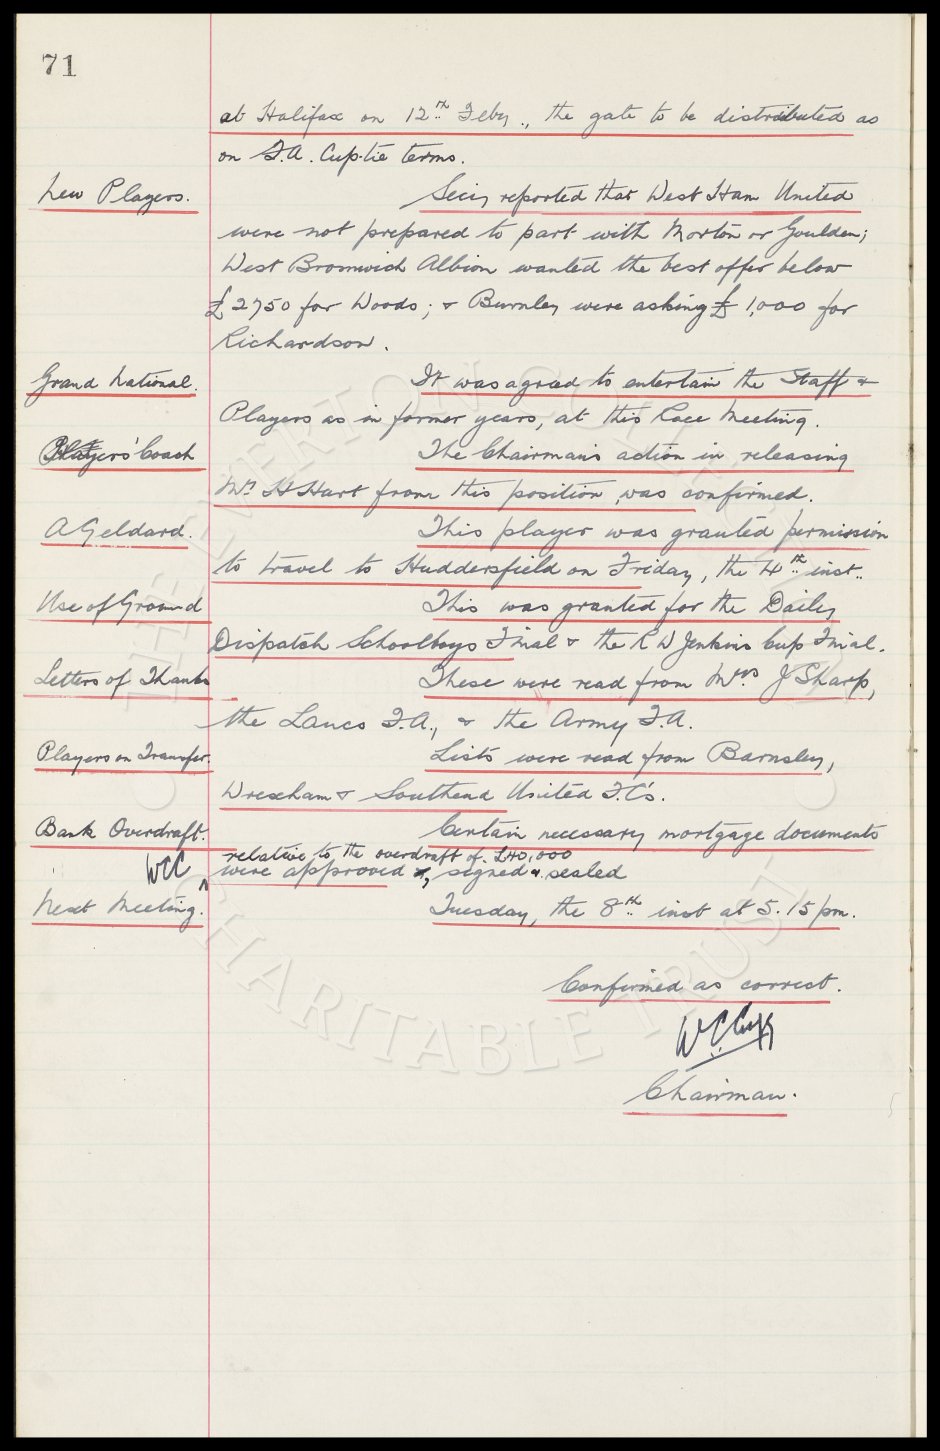 71
at Halifax on 12th Feby., the gate to be distributed as
on F.A. Cup-tie terms.
New Players. Secy reported that West Ham United
were not prepared to part with Morton or Goulden;
West Bromwich Albion wanted the best offer below
£2750 for Woods; & Burnley were asking £1,000 for
Richardson.
Grand National. It was agreed to entertain the Staff &
Players as in former years, at this Race Meeting.
Players' Coach The Chairman's action in releasing
Mr H Hart from this position, was confirmed.
A Geldard. This player was granted permission
to travel to Huddersfield on Friday, the 4th inst.
Use of Ground This was granted for the Daily
Dispatch Schoolboys Final & the R W Jenkins Cup Final.
Letters of Thanks These were read from Mrs J Sharp,
the Lancs F.A., & the Army F.A.
Players on Transfer. Lists were read from Barnsley,
Wrexham & Southend United F.C's.
Bank Overdraft. Certain necessary mortgage documents
relative to the overdraft of £40,000
WCC were approved, signed & sealed
Next Meeting. Tuesday, the 8th inst at 5.15 pm.
Confirmed as correct.
W C Cuff
Chairman.
THE EVERTON COLLECTION
CHARITABLE TRUST